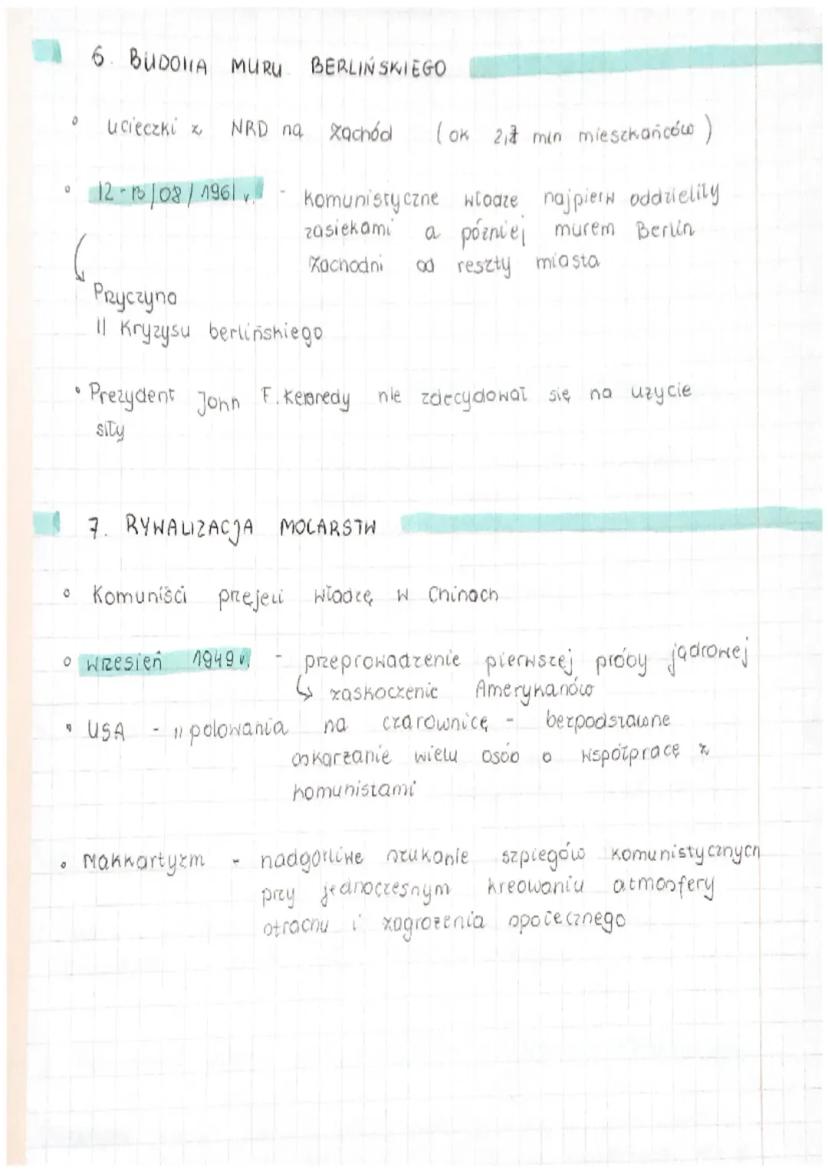 6. BUDOWA MURU BERLIŃSKIEGO
° ucieczki z NRD na zachód (ok 2,7 mln mieszkańców)
° 12-13/08/1961 r. - komunistyczne władze najpierw oddzieliły
zasiekami a później murem Berlin
Zachodni od reszty miasta
Przyczyna
II Kryzysu berlińskiego
• Prezydent John F. Kennedy nie zdecydował się na użycie
siły
7. RYWALIZACJA MOCARSTW
° Komuniści przejęli władzę w Chinach
° wrzesień 1949 r. - przeprowadzenie pierwszej próby jądrowej
↳ zaskoczenie Amerykanów
• USA - „polowania na czarownicę - bezpodstawne
oskarżanie wielu osób o współpracę z
komunistami
• Makkartyzm - nadgorliwe szukanie szpiegów komunistycznych
przy jednoczesnym kreowaniu atmosfery
strachu i zagrożenia społecznego